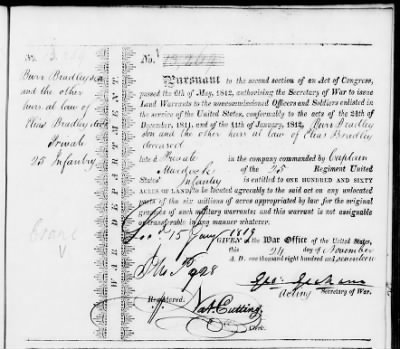 No.
Burr Bradley son
and the other
heirs at law of
Elias Bradley decd
Private
25 Infantry
WAR DEPARTMENT
No.
Pursuant to the second section of an Act of Congress,
passed the 6th of May, 1812, authorising the Secretary of War to issue
Land Warrants to the noncommissioned Officers and Soldiers enlisted
in the service of the United States, conformably to the acts of the 24th of
December, 1811, and of the 11th of January, 1812, Burr Bradley
son and the other heirs at law of Elias Bradley
deceased
late a Private in the company commanded by Captain
of the 25 Regiment United
States' Infantry is entitled to ONE HUNDRED AND SIXTY
ACRES OF LAND, to be located agreeably to the said act on any unlocated
part of the six millions of acres appropriated by law for the original
grantees of such military warrants; and this warrant is not assignable
or transferable in any manner whatever.
15 Jany 1819
GIVEN at the War Office of the United States,
this day of November
A. D. one thousand eight hundred and seventeen
Geo: Graham
Acting Secretary of War.
Registered.
Nat. Cutting
Clerk.